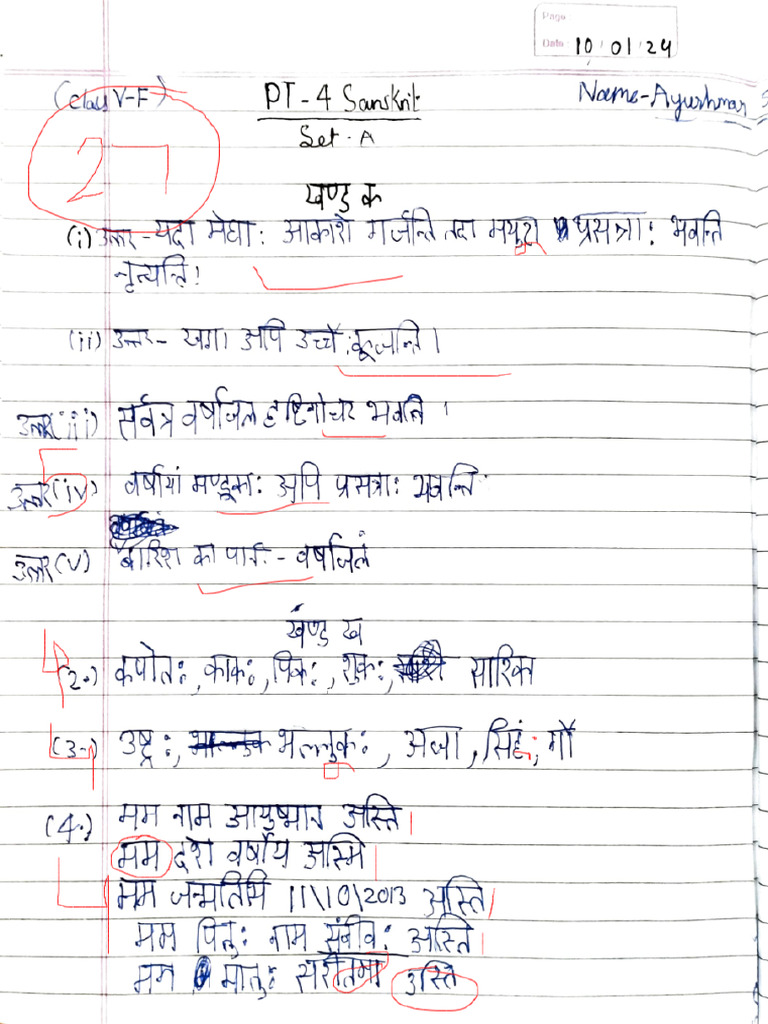 Page
Date 10/01/24
(class V-F) PT-4 Sanskrit Name-Ayushman
27 Set-A
खण्ड क
(i) उत्तर - यदा मेघा: आकाशे गर्जन्ति तदा मयुरा प्रसत्रा: भवन्ति
नृत्यन्ति।
(ii) उत्तर - खगा अपि उच्चै: कूजन्ति।
उत्तर (iii) सर्वत्र वर्षाजल दृष्टिगोचर भवति।
5
उत्तर (iv) वर्षायां मण्डूका: अपि प्रसत्रा: भवन्ति
उत्तर (v) बारिश का पानी - वर्षाजलं
खण्ड ख
4
(2.) कपोत:, काक:, पिक:, शुक:, सारिका
4
(3.) उष्ट्र:, भल्लुक:, अजा, सिहं:, गौ
(4.) मम नाम आयुष्मान अस्ति।
4
मम दशे वर्षाय अस्मि।
मम जन्मतिथि 11\10\2013 अस्ति।
मम पितु: नाम संजीव: अस्ति।
मम मातु: अस्ति